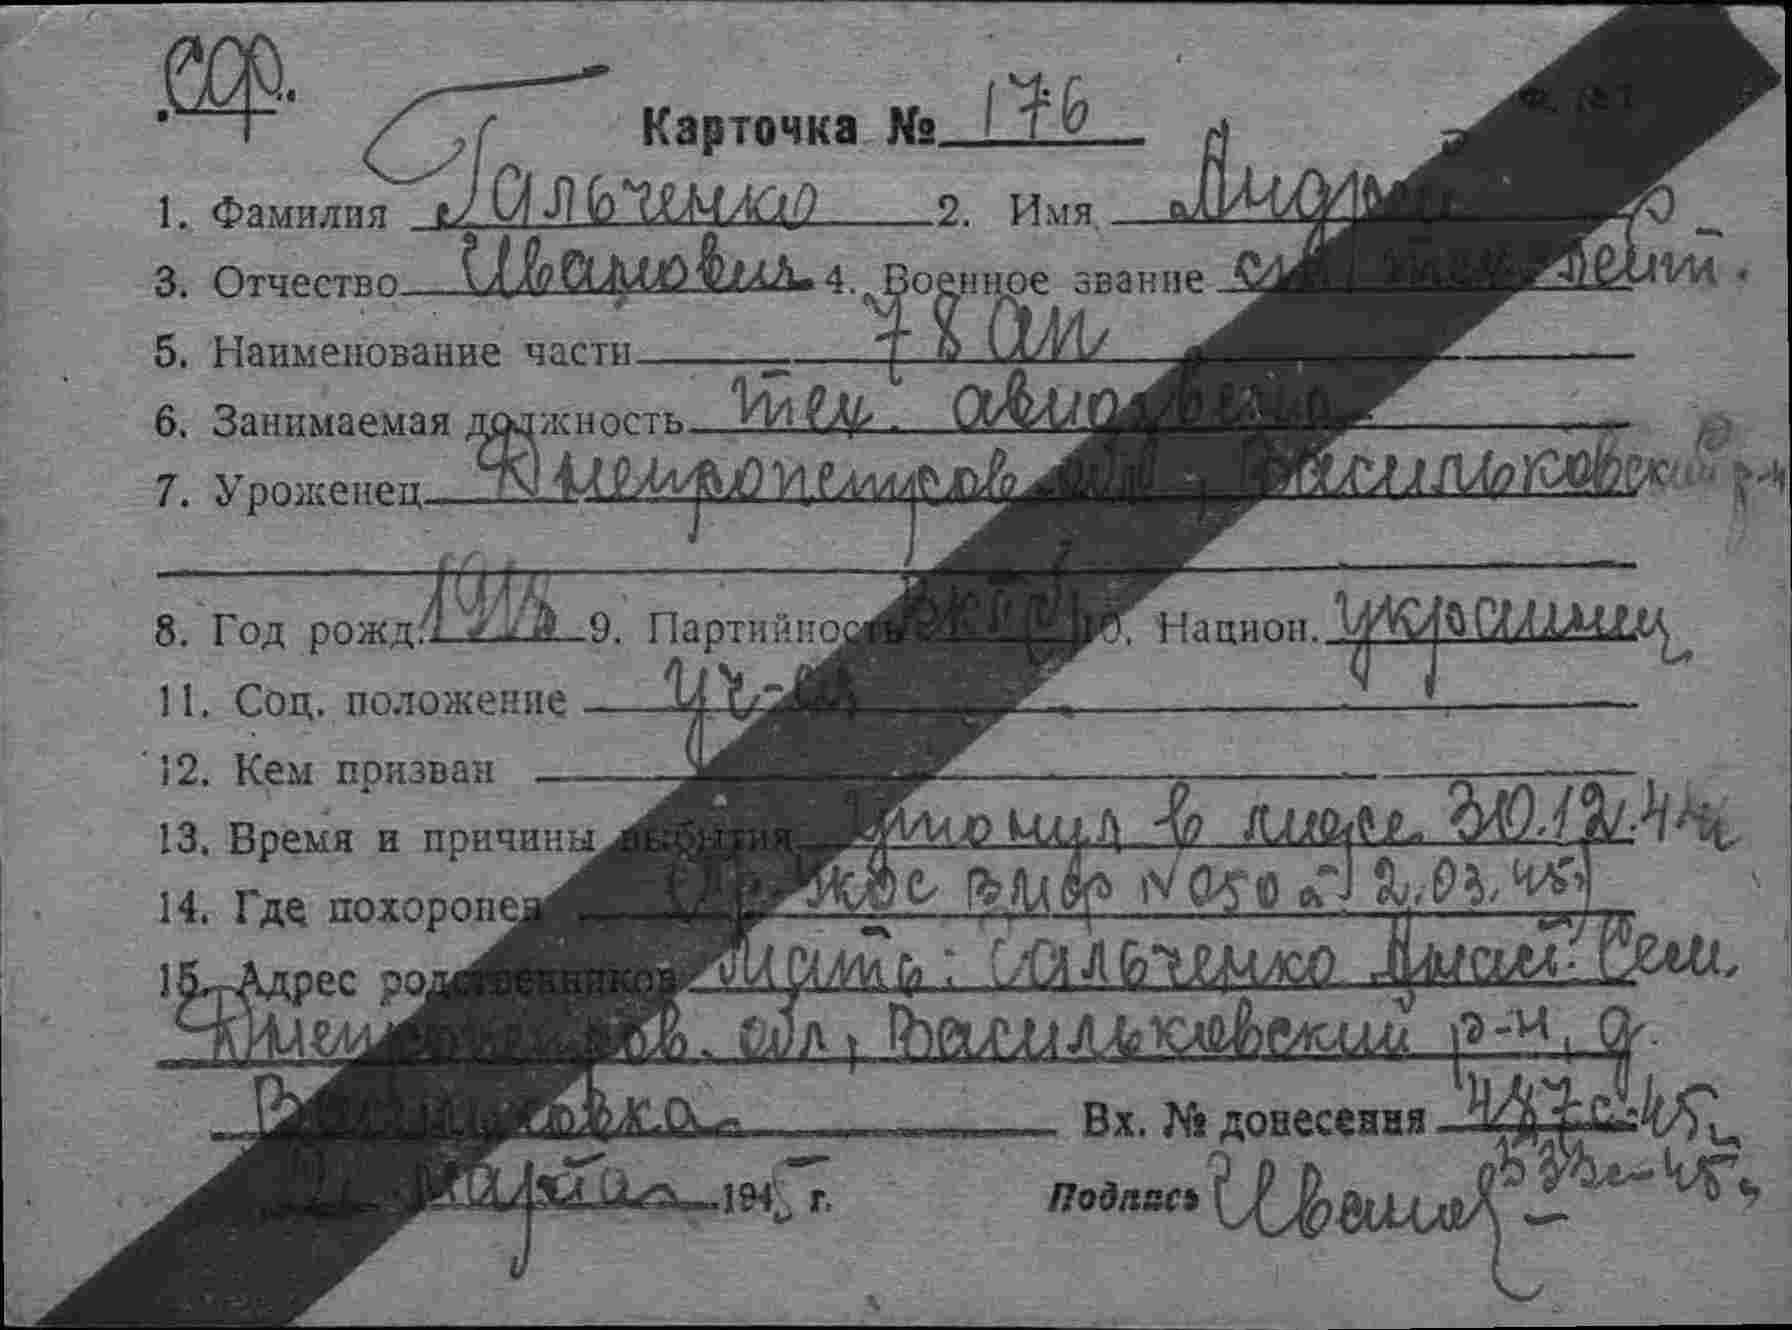 Карточка № 176
1. Фамилия Гальченко 2. Имя Андрей
3. Отчество Иванович 4. Военное звание тех. лейт.
5. Наименование части 78 ап
6. Занимаемая должность тех. авиазвена
7. Уроженец Днепропетров. обл, Васильковский р-н
8. Год рожд. 9. Партийность 10. Национ. украинец
11. Соц. положение уч-ся
12. Кем призван
13. Время и причины выбытия Утонул в море 30.12.44
14. Где похоронен ВМФ N 050 2.03.45
15. Адрес родственников Мать: Гальченко
Днепропетров. обл, Васильковский р-н, д.
Васильковка Вх. № донесения 487с-45
марта 1945 г. Подпись Иванов